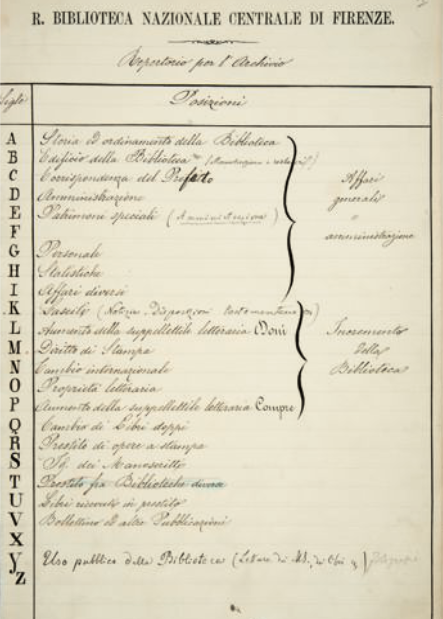 R. BIBLIOTECA NAZIONALE CENTRALE DI FIRENZE.
Repertorio per l'Archivio
Sigle Posizioni
A Storia ed ordinamento della Biblioteca
B Edificio della Biblioteca
C Corrispondenza del Prefetto
D Amministrazione
E Patrimoni speciali
F
G Personale
H Statistiche
I Affari diversi
Affari
generali
e
amministrazione
K Lasciti (Notizie, Disposizioni
L Aumento della suppellettile letteraria Doni
M Diritto di Stampa
N Cambio internazionale
O Proprietà letteraria
P Aumento della suppellettile letteraria Compre
Incremento
della
Biblioteca
Q Cambio di Libri doppi
R Prestito di opere a stampa
S Id. dei Manoscritti
T Prestito fra Biblioteche diverse
U Libri ricevuti in prestito
V Bollettino ed altre Pubblicazioni
X
Y Uso pubblico della Biblioteca (Letture di MS., di libri
Z